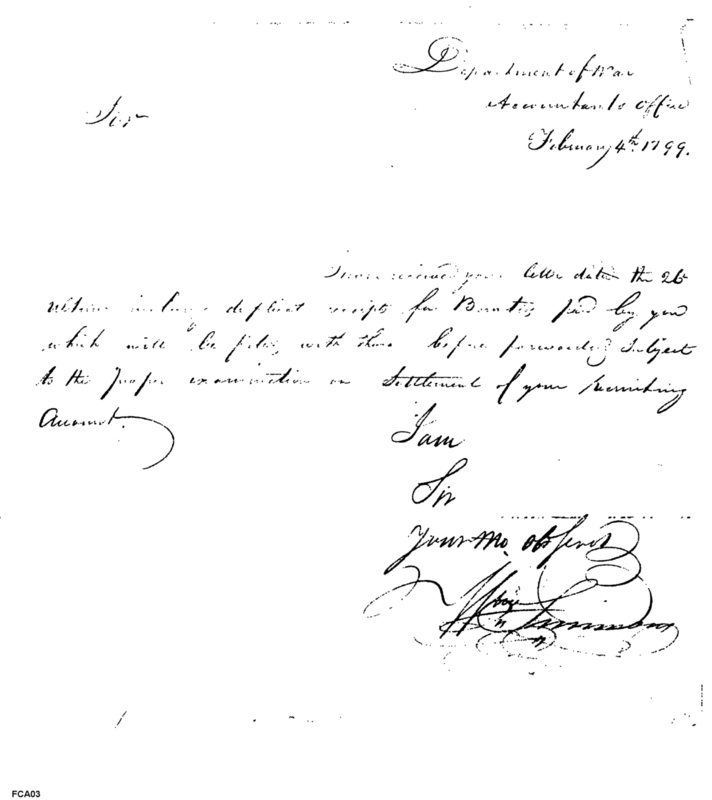 Department of War
Accountants Office
Sir
February 4th. 1799.
I have received your letter dated the 26
Ultimo inclosing duplicat receipts for Bounties paid by you
which will be filed with those before forwarded subject
to the proper examination on Settlement of your recruiting
Account.
I am
Sir
Your Mo. Ob Servt
Wm Simmons
FCA03